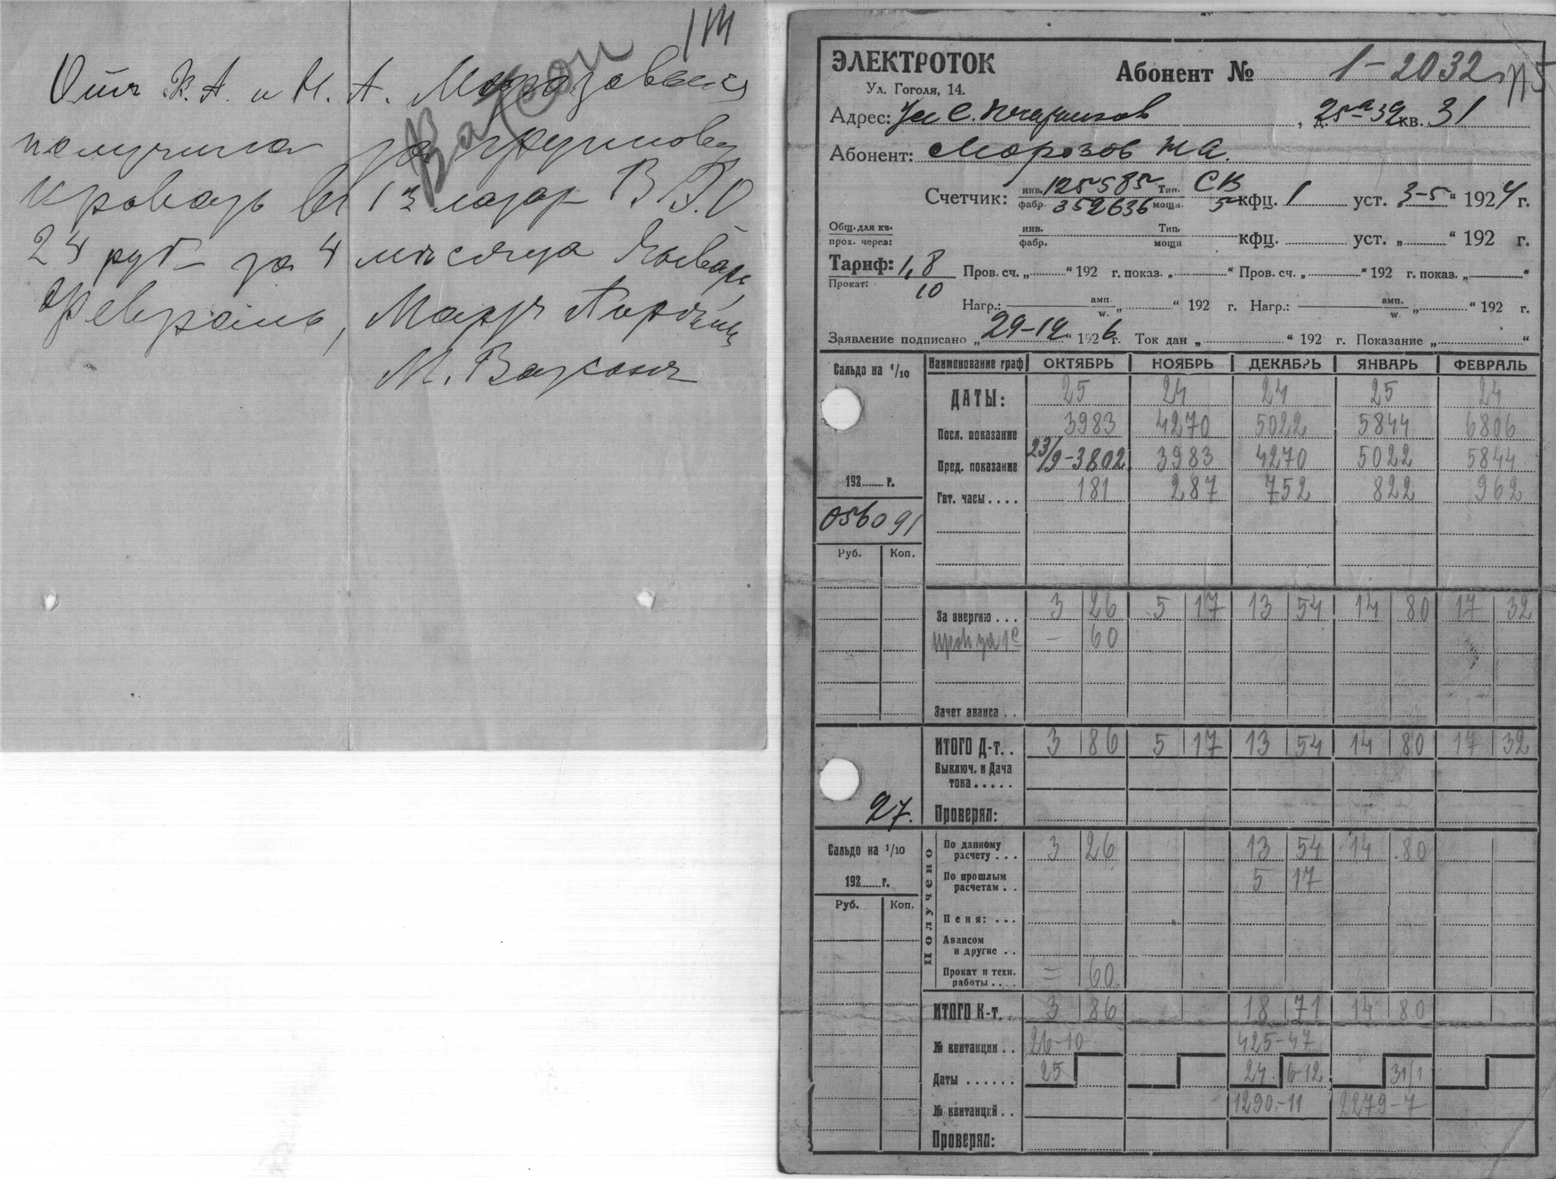 114
От К. А. и Н. А. Морозовых
получила за
кровать
24 руб за 4 месяца Январь,
Февраль, Март Апрель
М. Ваксон
Ваксон
ЭЛЕКТРОТОК
Ул. Гоголя, 14.
Абонент № 1-2032
115
Адрес: Ул С. , д. 25-а 39 кв. 31
Абонент: Морозов НА.
Счетчик: инв. 125585 Тип. СВ кфц. 1 уст. 3-5 " 1924 г.
фабр. 352636 мощн. 5
Общ. для кв. инв. Тип
прох. через: фабр. мощн кфц. уст. „ “ 192 г.
Тариф: 1,8 Пров. сч. „ “ 192 г. показ. „ “ Пров. сч. „ “ 192 г. показ. „ “
Прокат: 10
Нагр.: амп. w. „ “ 192 г. Нагр.: амп. w. „ “ 192 г.
Заявление подписано „ 29-12 “ 1926 г. Ток дан „ “ 192 г. Показание „ “
Сальдо на 1/10 Наименование граф ОКТЯБРЬ НОЯБРЬ ДЕКАБРЬ ЯНВАРЬ ФЕВРАЛЬ
ДАТЫ: 25 24 24 25 24
Посл. показание 3983 4270 5022 5844 6806
Пред. показание 23/9-3802 3983 4270 5022 5844
192 г. Гвт. часы . . . . 181 287 752 822 962
056091
Руб. Коп.
За энергию . . . 3 26 5 17 13 54 14 80 17 32
— 60
Зачет аванса . .
ИТОГО Д-т. . 3 86 5 17 13 54 14 80 17 32
Выключ. и Дача
тока . . . . .
27. Проверял:
Сальдо на 1/10
192 г.
Руб. Коп.
Получено
По данному
расчету . . . 3 26 13 54 14 80
По прошлым
расчетам . . 5 17
Пеня: . . .
Авансом
и другие . .
Прокат и техн.
работы . . . . = 60
ИТОГО К-т. . 3 86 18 71 14 80
№ квитанции . . 26-10 425-47
Даты . . . . . . 25 24 6-12 31/1
№ квитанций . . 1290-11 2279-7
Проверял: